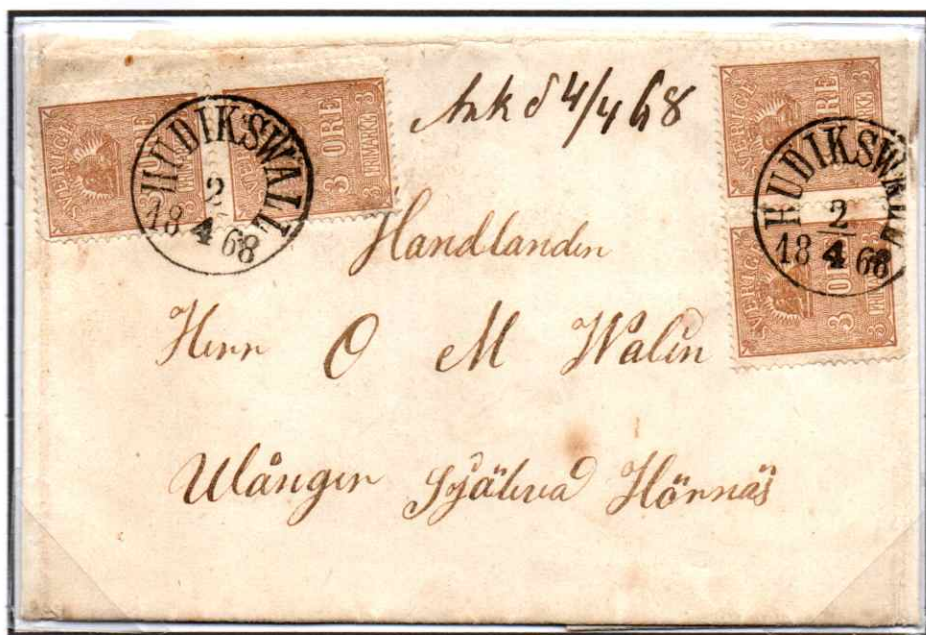 SVERIGE 3 ÖRE
SVERIGE 3 ÖRE
HUDIKSWALL
2
18 4 68
Ank d 4/4 68
SVERIGE 3 ÖRE
SVERIGE 3 ÖRE
HUDIKSWALL
2
18 4 68
Handlanden
Herr O M Walin
Ulånger Själevad Hörnäs